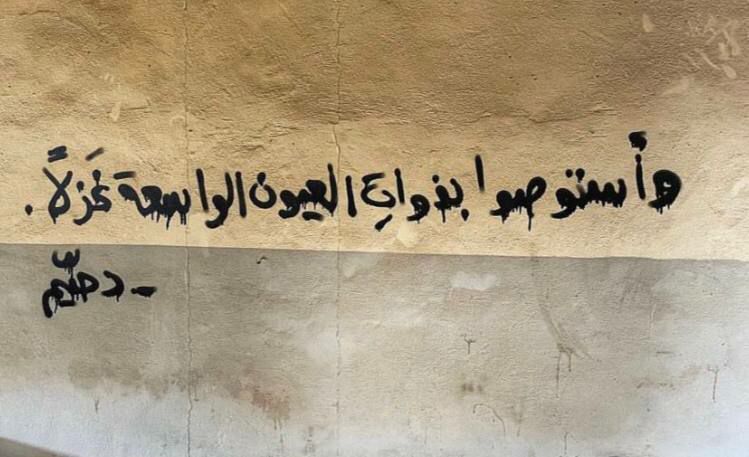 وأستوصوا بذواتِ العيون الواسعة غَزلاً .
- دحيّم